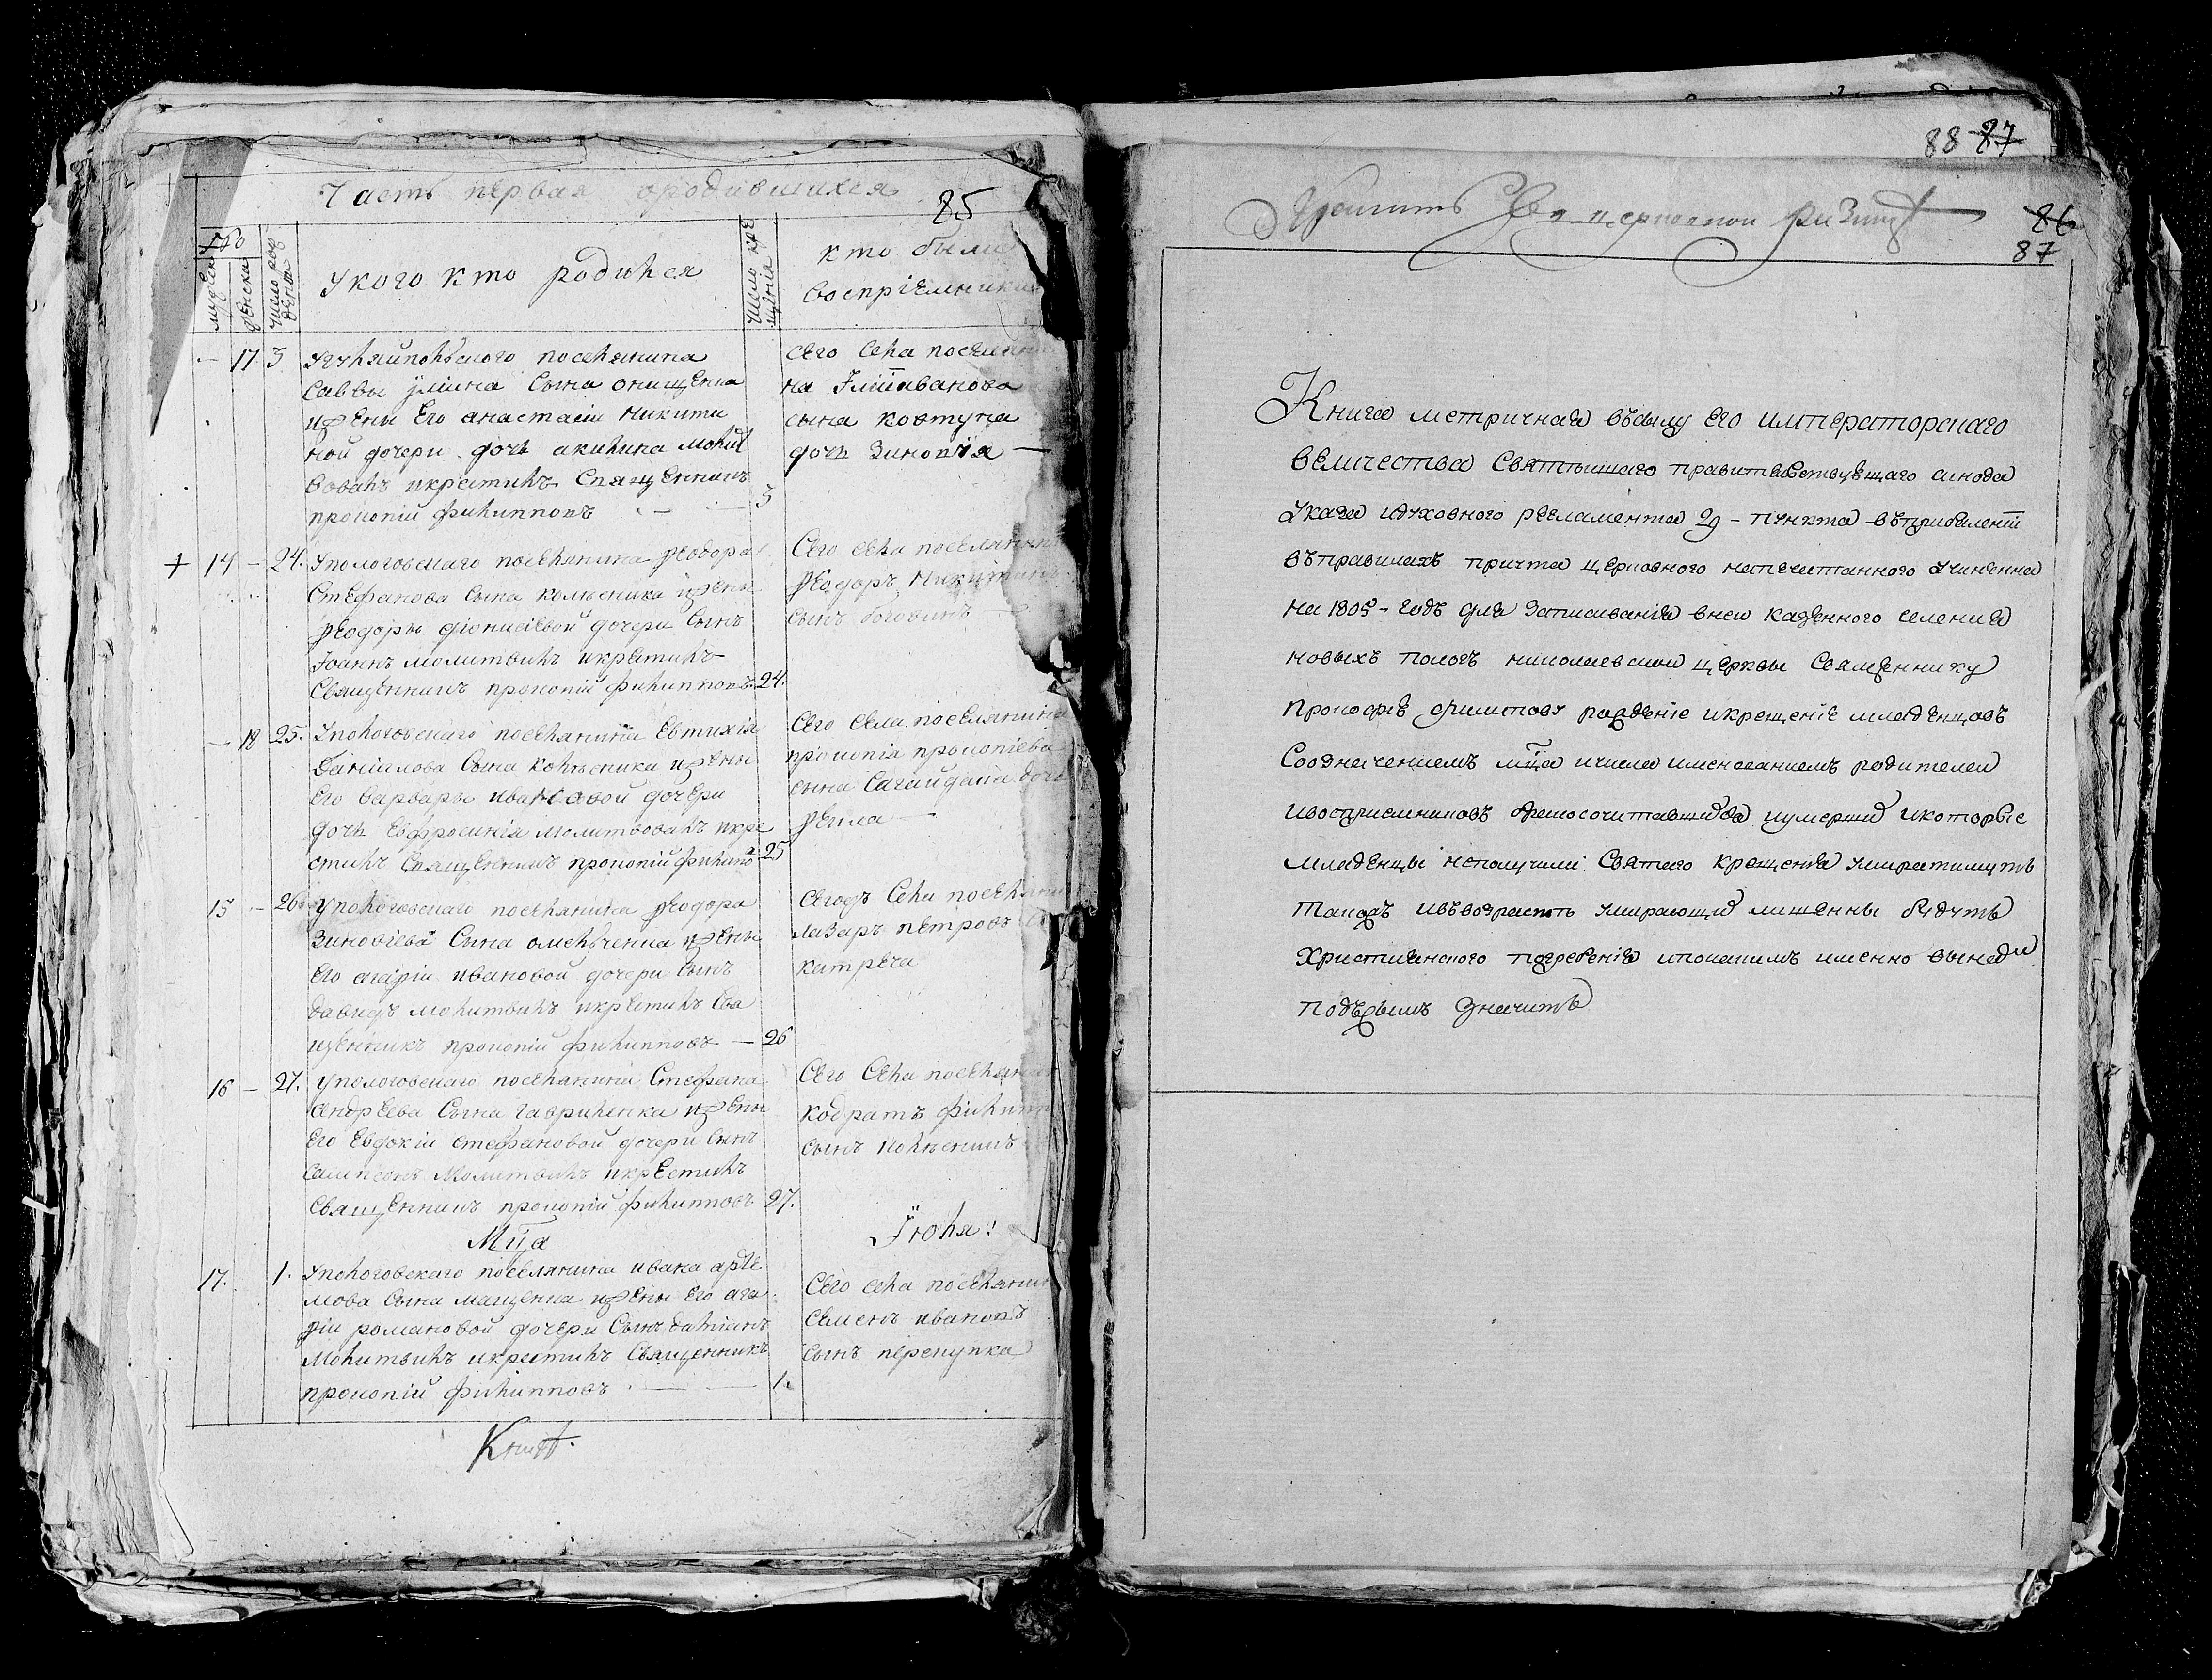 Часть первая ородившихся
85
мужеска
женска
число рож
денія
У кого кто родился
число кре
щенія
кто были
воспріемники
— 17 3
посѣлянина
Саввы Сына онищенка
ижены Его анастасіи никити
ной дочери дочь акилина молит
вовалъ икрестилъ Священникъ
прокопій филипповъ — 3
сего села поселяни
на
сына ковтуна
дочь Зиновія —
+ 14 — 24. Упологовскаго посѣлянина Ѳеодора
Стефанова Сына колѣсника ижены
Ѳеодоры діонисіевой дочери Сынъ
Іоаннъ молитвилъ икрестилъ
Священникъ прокопій филипповъ 24.
Сего села поселянинъ
Ѳеодоръ никитинъ
сынъ
— 18 25. Упологовскаго поселянина Евтихія
Даніилова Сына колѣсника ижены
Его варвары ивановой дочери
дочь Евфросинія молитвовалъ икре
стилъ Священникъ прокопій филипо 25
Сего села поселянина
прокопія прокопіева
сына Сагайдака дочь
Ѳекла —
15 — 26 Упологовскаго поселянина Ѳеодора
Зиновіева Сына омелѣченка ижены
Его агафіи ивановой дочери Сынъ
давидъ молитвилъ икрестилъ Свя
щенникъ прокопій филипповъ — 26
Сегожъ Села поселянин
Лазаръ петровъ
катреча
16 — 27. Упологовскаго поселянина Стефана
андрѣева Сына гавриленка ижены
Его Евдокіи стефановой дочери Сынъ
Сампсонъ Молитвилъ икрестилъ
Священникъ прокопій филипповъ 27.
Сего Села поселянин
кодратъ филипп
сынъ колѣсникъ
Мца Іюня:
17. 1. Упологовскаго поселянина ивана арте
мова Сына мащенка ижены Его ага
фіи романовой дочери Сынъ даміанъ
Молитвилъ икрестилъ Священникъ
прокопій филипповъ — 1.
Сего села поселянин
Семенъ ивановъ
сынъ перепупка
88 87
86
87
Книга метричная въсилу его императорскаго
величества Святѣишаго правителствующаго синода
Указа идуховного регламента 29 - пункта въприбавленіи
въправилахъ причта церковного напечатанного Учиненна
на 1805 - годъ для Записыванія внеи казенного селенія
новыхъ пологъ николаевскои церквы Священнику
прокофію филипову рожденіе икрещеніе младенцовъ
Сообзначеніемъ мца ичисла именованіемъ родителеи
ивоспріемниковъ бракосочитавшихся иумерших икоторые
младенцы неполучили Святаго крещенія умиратимутъ
такожъ ивъвозрастѣ умирающих лишенны будутъ
Христианского погребенія ипокакимъ именно винам
подъсимъ Значитъ